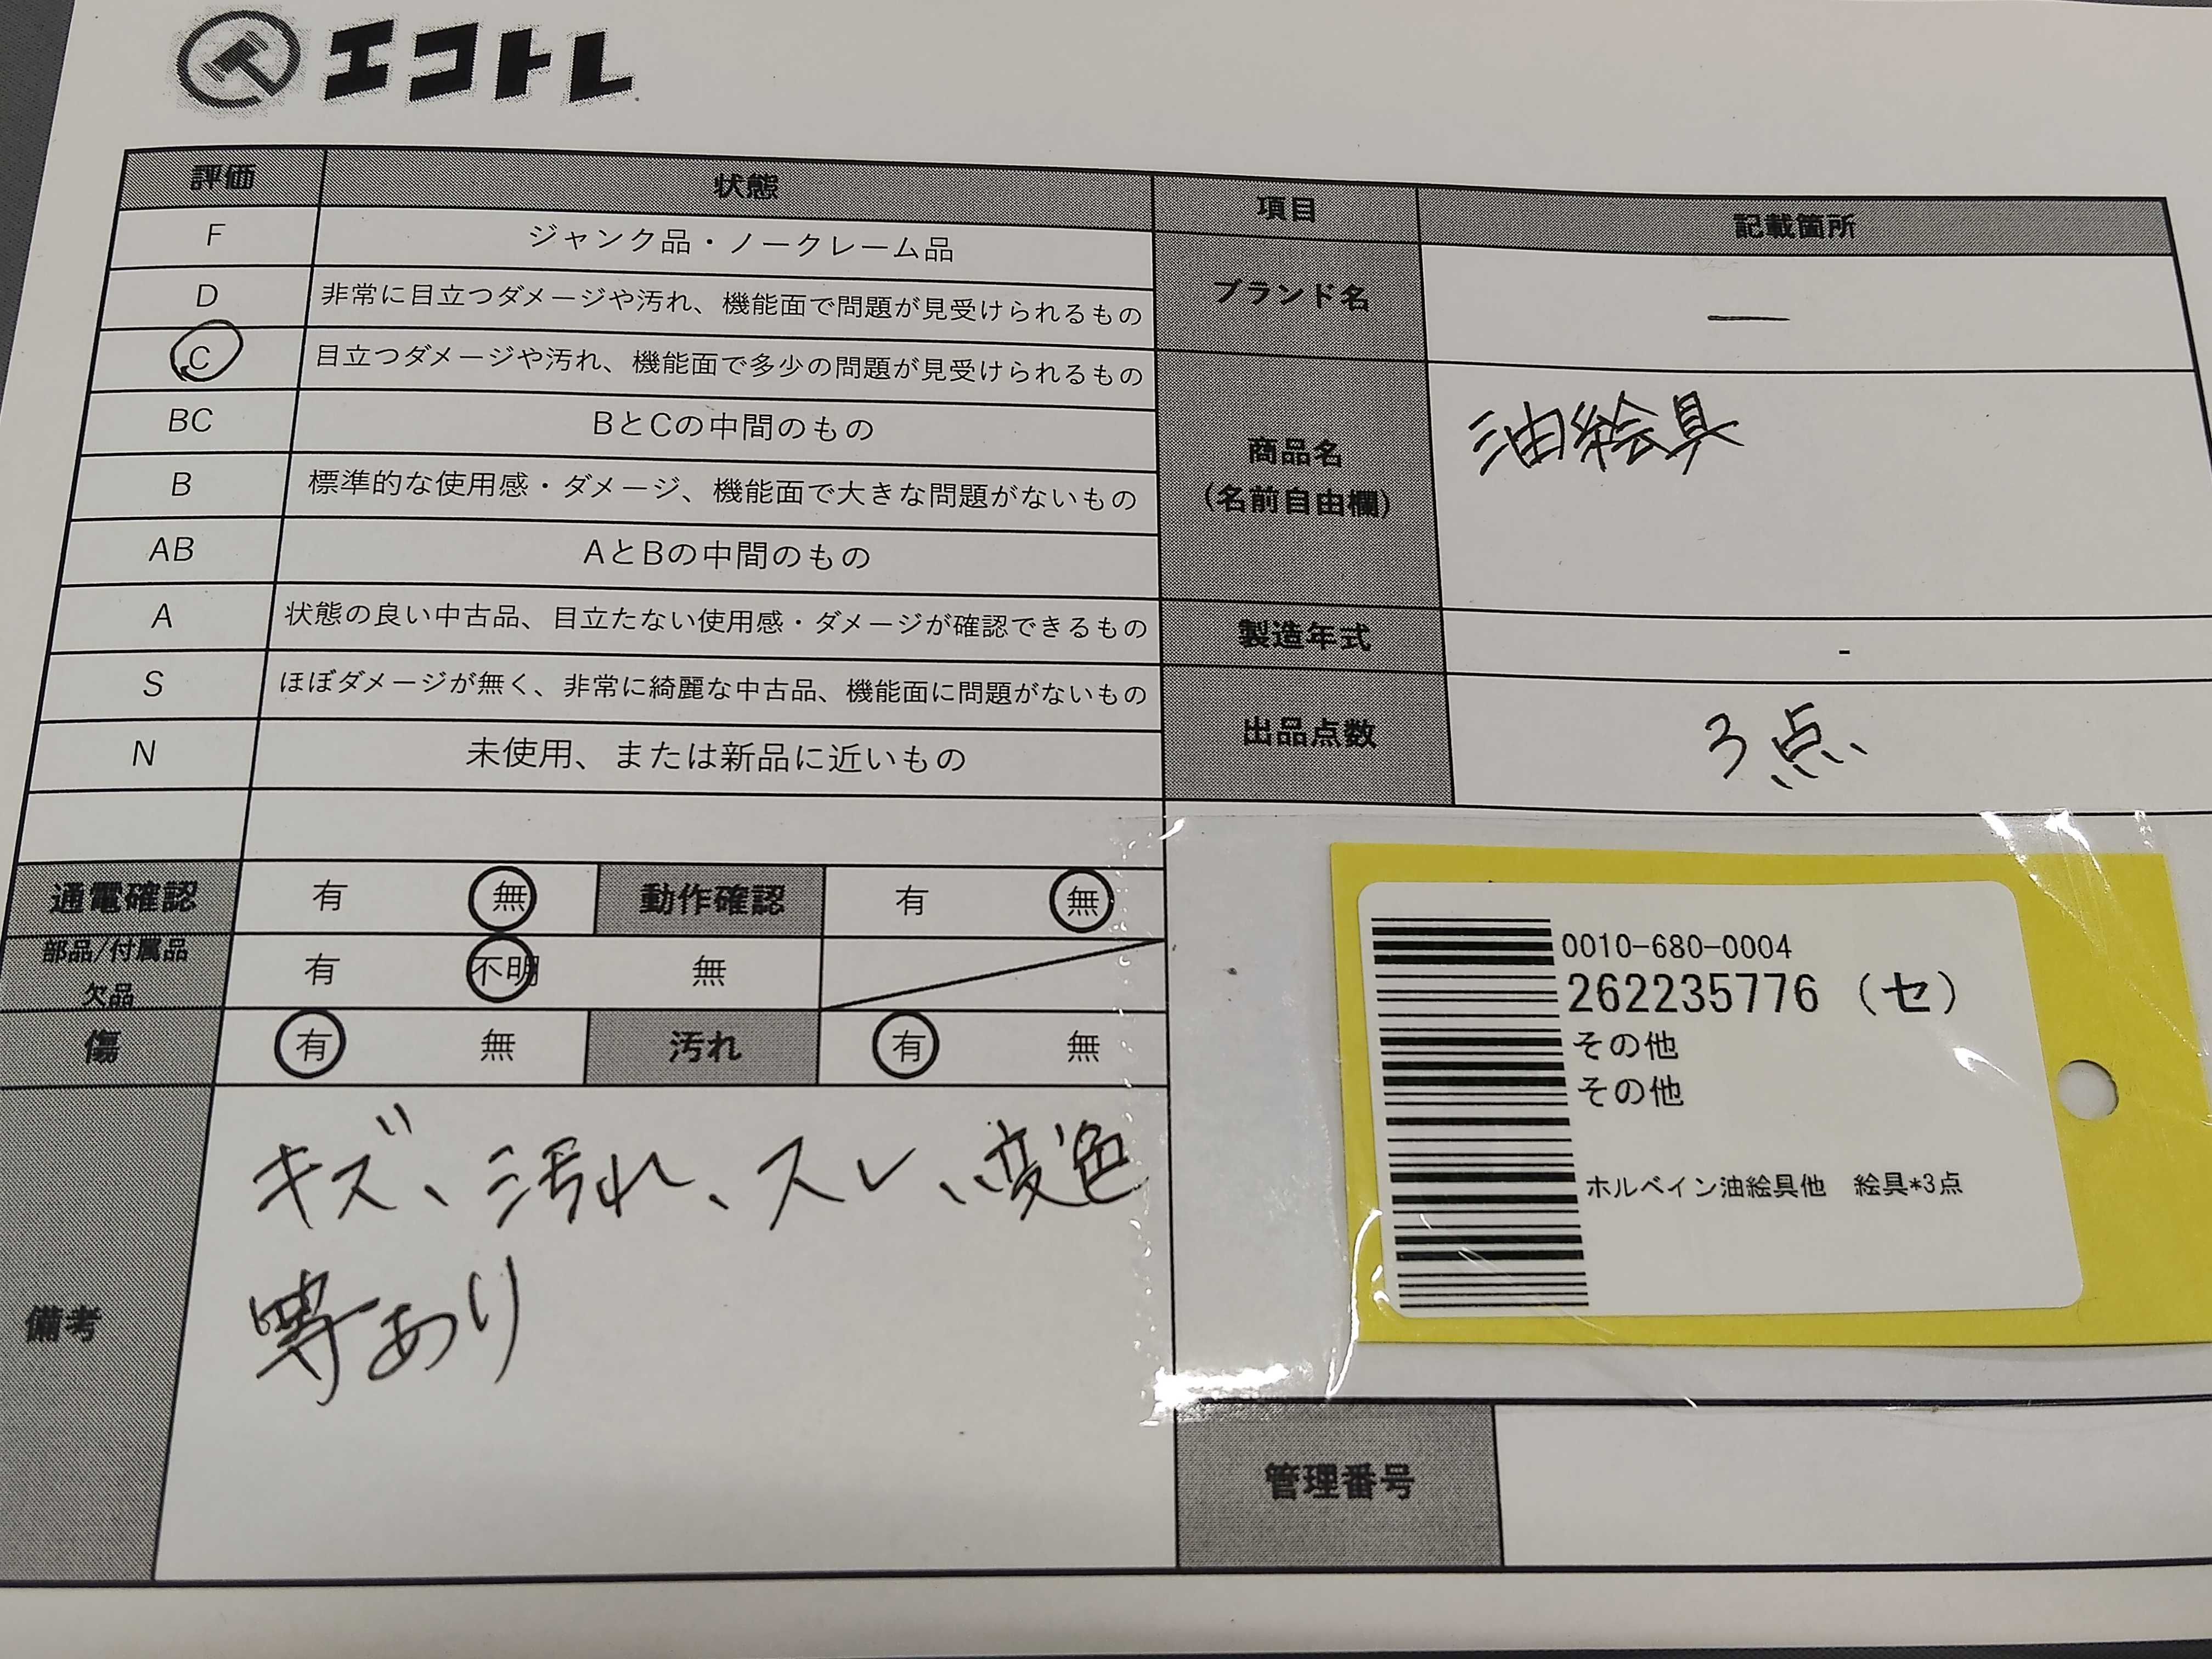 エコトレ
評価 状態 項目 記載箇所
F ジャンク品・ノークレーム品
D 非常に目立つダメージや汚れ、機能面で問題が見受けられるもの
C 目立つダメージや汚れ、機能面で多少の問題が見受けられるもの
BC BとCの中間のもの
B 標準的な使用感・ダメージ、機能面で大きな問題がないもの
AB AとBの中間のもの
A 状態の良い中古品、目立たない使用感・ダメージが確認できるもの
S ほぼダメージが無く、非常に綺麗な中古品、機能面に問題がないもの
N 未使用、または新品に近いもの
ブランド名 ―
商品名
(名前自由欄)
油絵具
製造年式 -
出品点数 3点
通電確認 有 無 動作確認 有 無
部品/付属品
欠品
有 不明 無
傷 有 無 汚れ 有 無
備考
キズ、汚れ、スレ、変色
等あり
0010-680-0004
262235776（セ）
その他
その他
ホルベイン油絵具他 絵具*3点
管理番号